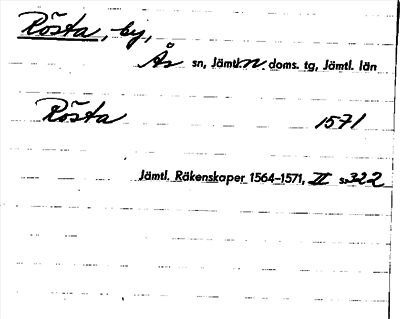 Rösta, by,
Ås sn, Jämtl. n. doms. tg, Jämtl. län
Rösta 1571
Jämtl. Räkenskaper 1564-1571, II s. 322